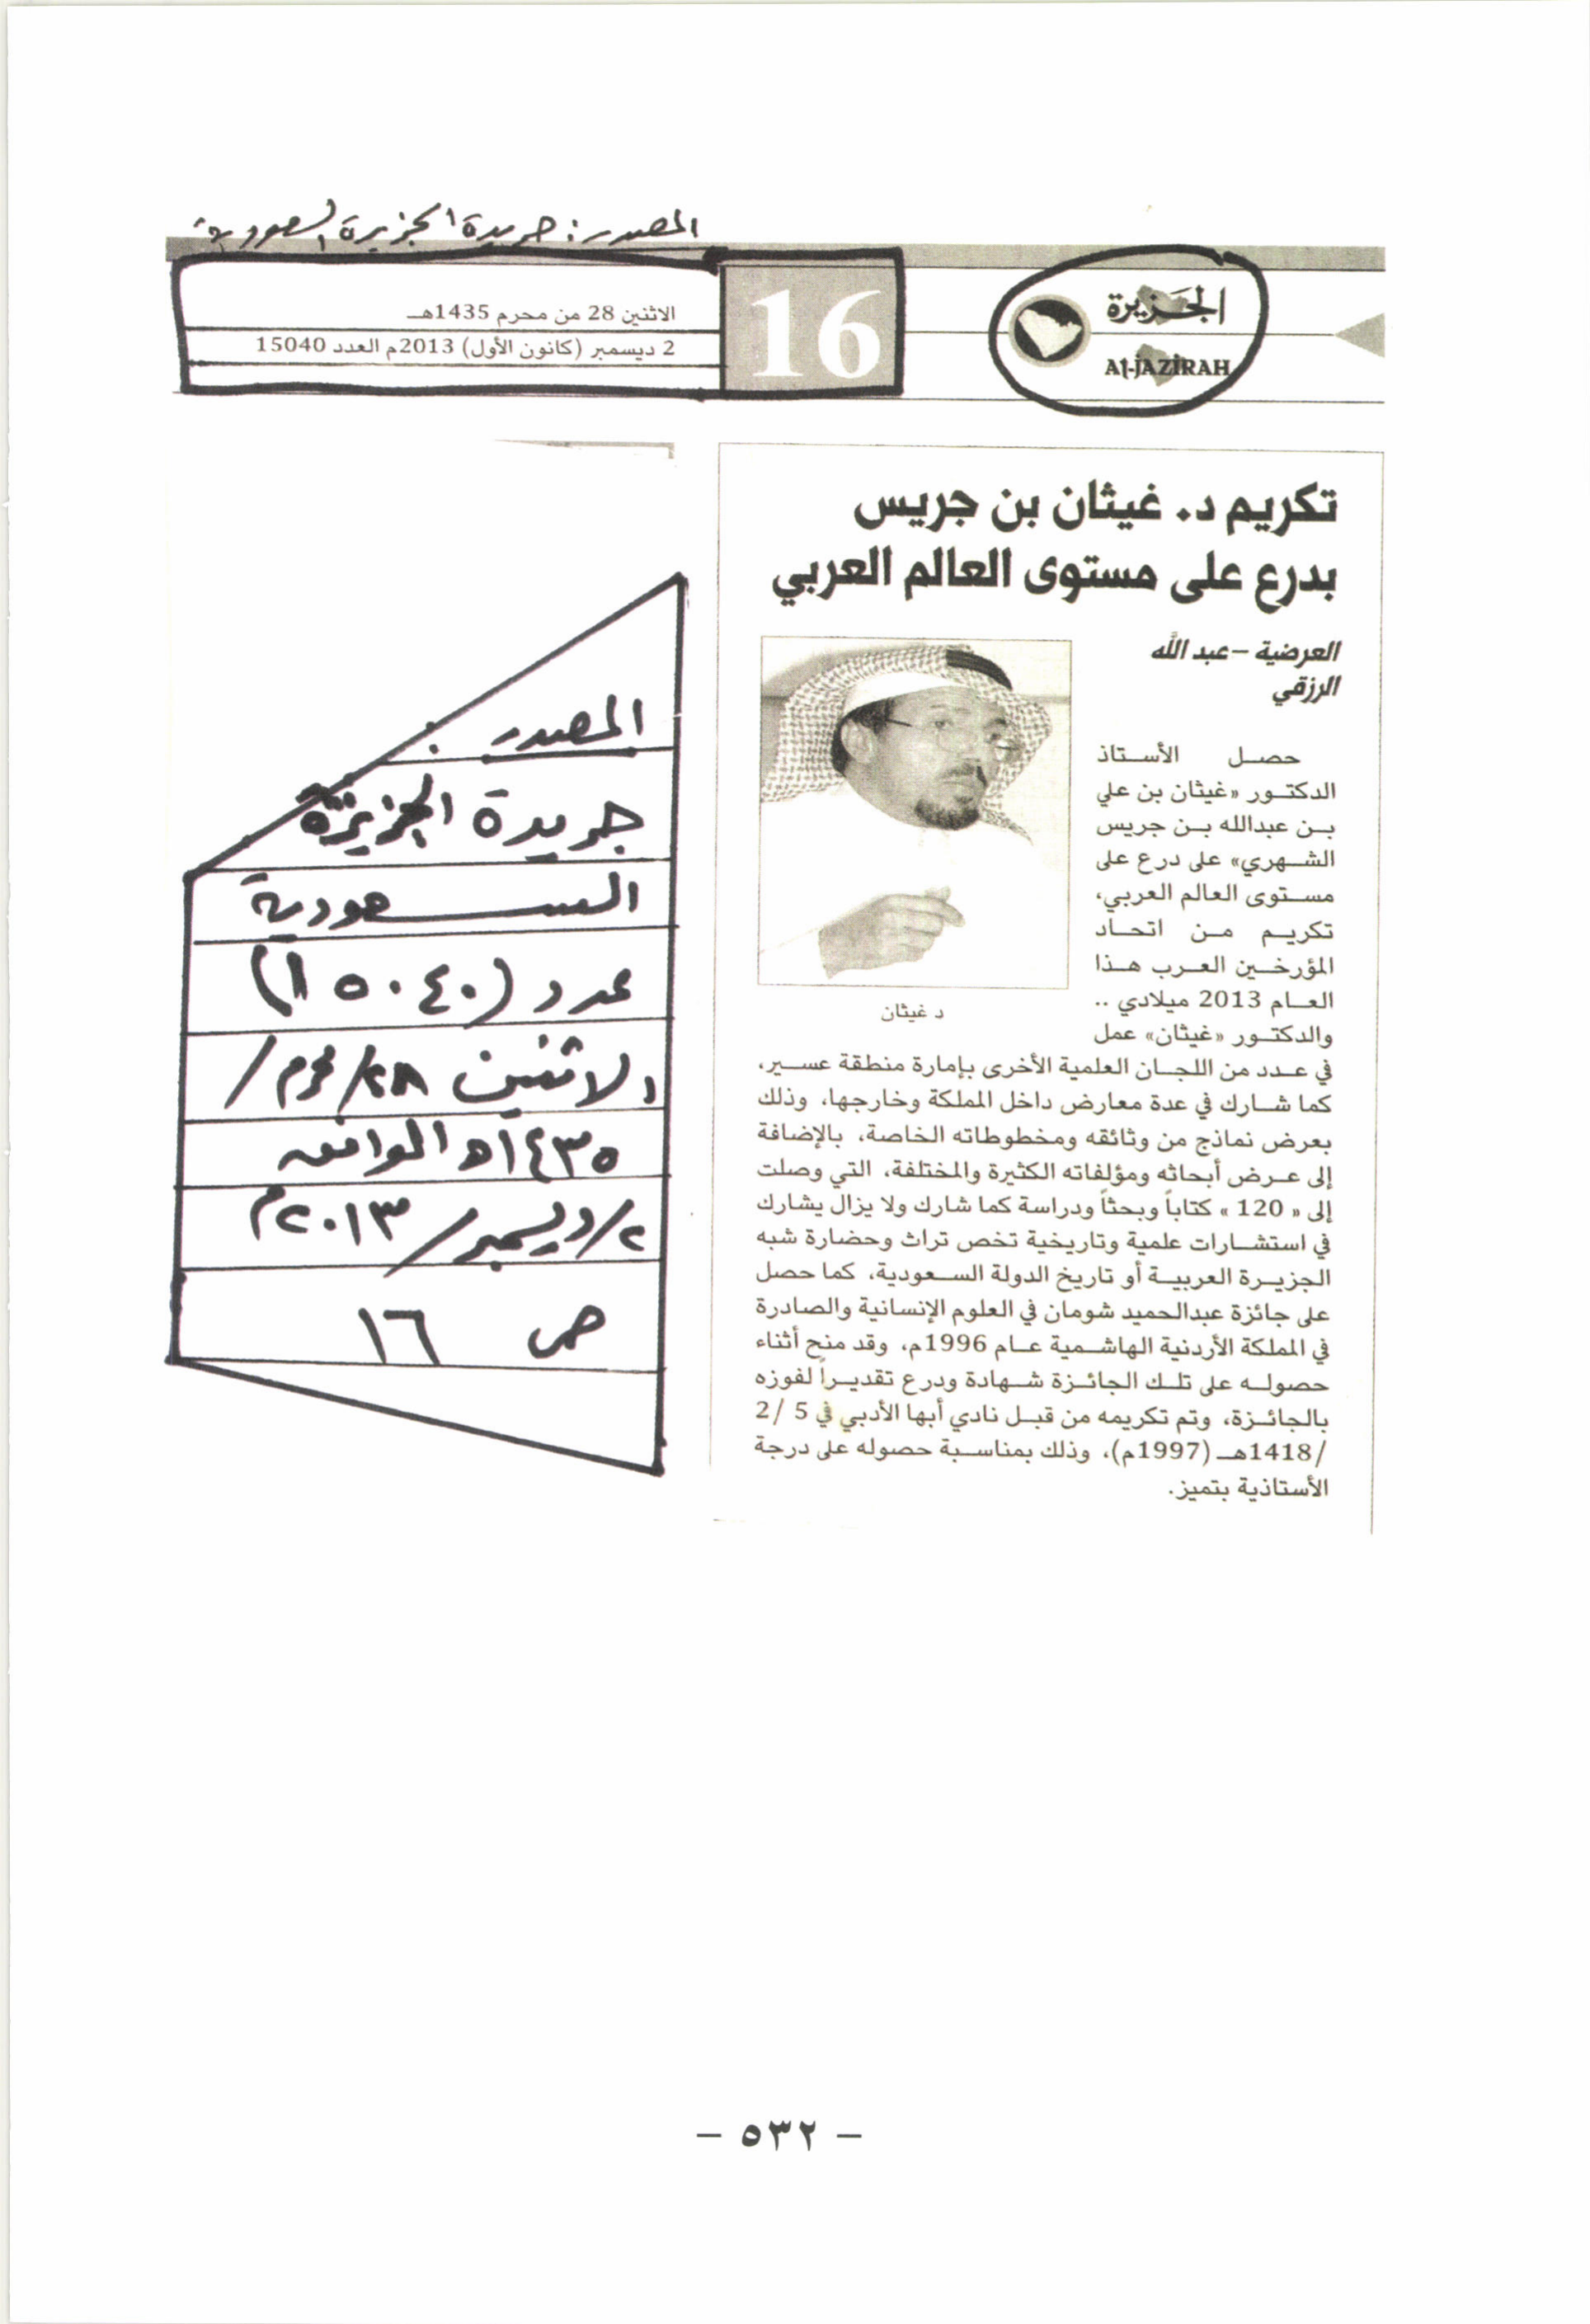 المصدر: جريدة الجزيرة السعودية
الجزيرة
Al-JAZIRAH
16
الاثنين 28 من محرم 1435هـ
2 ديسمبر (كانون الأول) 2013م العدد 15040
تكريم د. غيثان بن جريس
بدرع على مستوى العالم العربي
العرضية – عبد الله
الرزقي
حصل الأستاذ
الدكتور «غيثان بن علي
بن عبدالله بن جريس
الشهري» على درع على
مستوى العالم العربي،
تكريم من اتحاد
المؤرخين العرب هذا
العام 2013 ميلادي ..
والدكتور «غيثان» عمل
في عدد من اللجان العلمية الأخرى بإمارة منطقة عسير،
كما شارك في عدة معارض داخل المملكة وخارجها، وذلك
بعرض نماذج من وثائقه ومخطوطاته الخاصة، بالإضافة
إلى عرض أبحاثه ومؤلفاته الكثيرة والمختلفة، التي وصلت
إلى « 120 » كتاباً وبحثاً ودراسة كما شارك ولا يزال يشارك
في استشارات علمية وتاريخية تخص تراث وحضارة شبه
الجزيرة العربية أو تاريخ الدولة السعودية، كما حصل
على جائزة عبدالحميد شومان في العلوم الإنسانية والصادرة
في المملكة الأردنية الهاشمية عام 1996م، وقد منح أثناء
حصوله على تلك الجائزة شهادة ودرع تقديراً لفوزه
بالجائزة، وتم تكريمه من قبل نادي أبها الأدبي في 5 /2
/1418هـ (1997م)، وذلك بمناسبة حصوله على درجة
الأستاذية بتميز.
د غيثان
المصدر :
جريدة الجزيرة
السعودية
عدد (١٥٠٤٠)
الاثنين ٢٨/محرم/
١٤٣٥هـ الموافق
٢/ديسمبر/٢٠١٣م
ص ١٦
– ٥٣٢ –